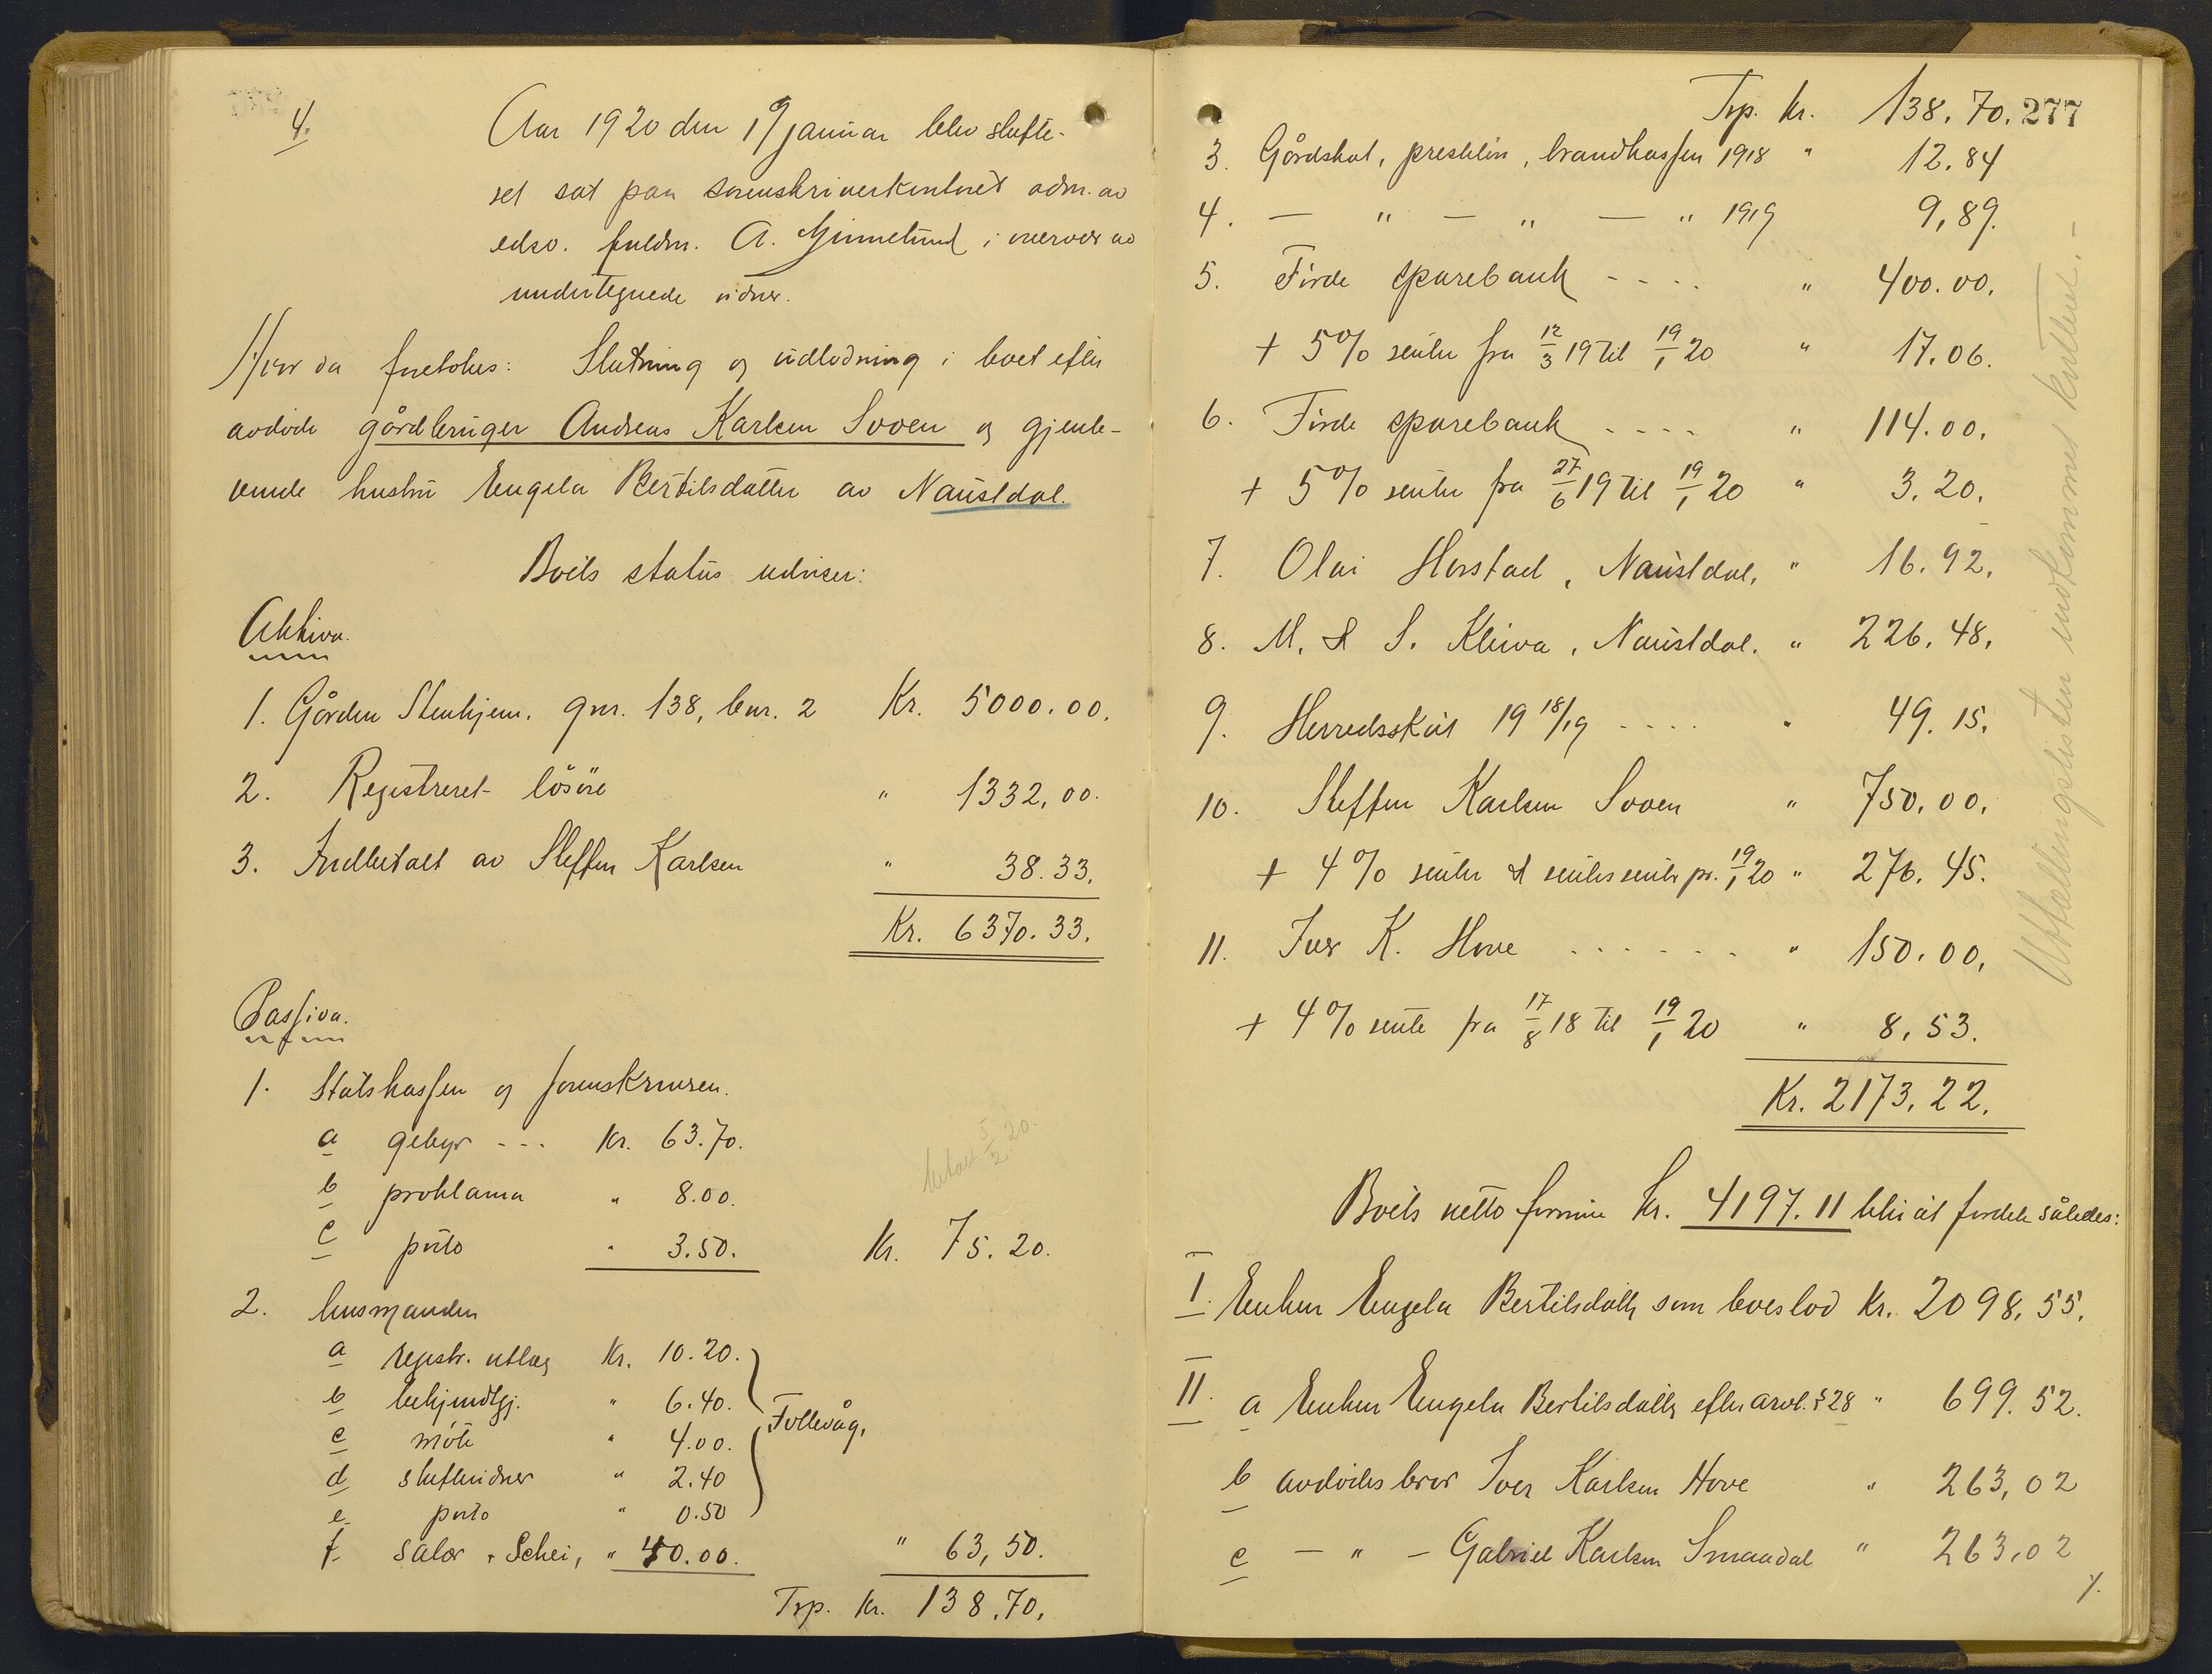 4.
Aar 1920 den 19 januar blev skifte-
ret sat paa sorenskriverkontoret adm. av
edsv. fuldm. A. Gjinnelund i nærvær av
undertegnede vidner.
Hvor da foretokes: Slutning og udlodning i boet efter
avdøde gårdbruger Andreas Karlsen Soven og gjenle-
vende hustru Engela Bertilsdatter av Naustdal.
Boets status udviser:
Aktiva.
1. Gården Stenhjem. gnr. 138, bnr. 2 Kr. 5000.00.
2. Registreret løsøre " 1332,00.
3. Indbetalt av Steffen Karlsen " 38.33.
Kr. 6370.33.
Passiva.
1. Statskassen og sorenskriveren.
a gebyr --- Kr. 63.70.
betalt 5/2 20.
b proklama " 8.00.
c porto " 3.50. Kr. 75.20.
2. lensmanden
a registr. utlæg Kr. 10.20.
b bekjendtgj. " 6.40.
Follevåg,
c møte " 4.00.
d skiftevidner " 2.40
e porto " 0.50
f salær + Schei, " 40.00. " 63,50.
Trp. kr. 138.70.
Trp. kr. 138.70. 277
3. Gårdskat, presteløn, brandkassen 1918 " 12.84
4. — " — " — " 1919 9,89.
5. Førde sparebank ---- " 400.00.
+ 5% renter fra 12/3 19 til 19/1 20 " 17.06.
6. Førde sparebank ---- " 114.00.
+ 5% renter fra 27/6 19 til 19/1 20 " 3.20.
7. Olai Horstad, Naustdal, " 16.92.
8. M. & S. Kleiva, Naustdal. " 226.48.
9. Herredsskat 19 18/19 ---- " 49.15.
10. Steffen Karlsen Soven " 750.00.
+ 4% renter & rentersrente pr. 19/1 20 " 276.45.
11. Iver K. Hove ------ " 150.00.
+ 4% rente fra 17/8 18 til 19/1 20 " 8,53.
Kr. 2173.22.
Boets netto formue kr. 4197.11 blir at fordele således:
I. Enken Engela Bertilsdatter som boeslod kr. 2098.55.
II. a Enken Engela Bertilsdatter efter arvel. § 28 " 699.52.
b avdødes bror Iver Karlsen Hove " 263,02
c — " — Gabriel Karlsen Smaadal " 263,02
%.
Utfællingslisten indkommet kvitteret.–